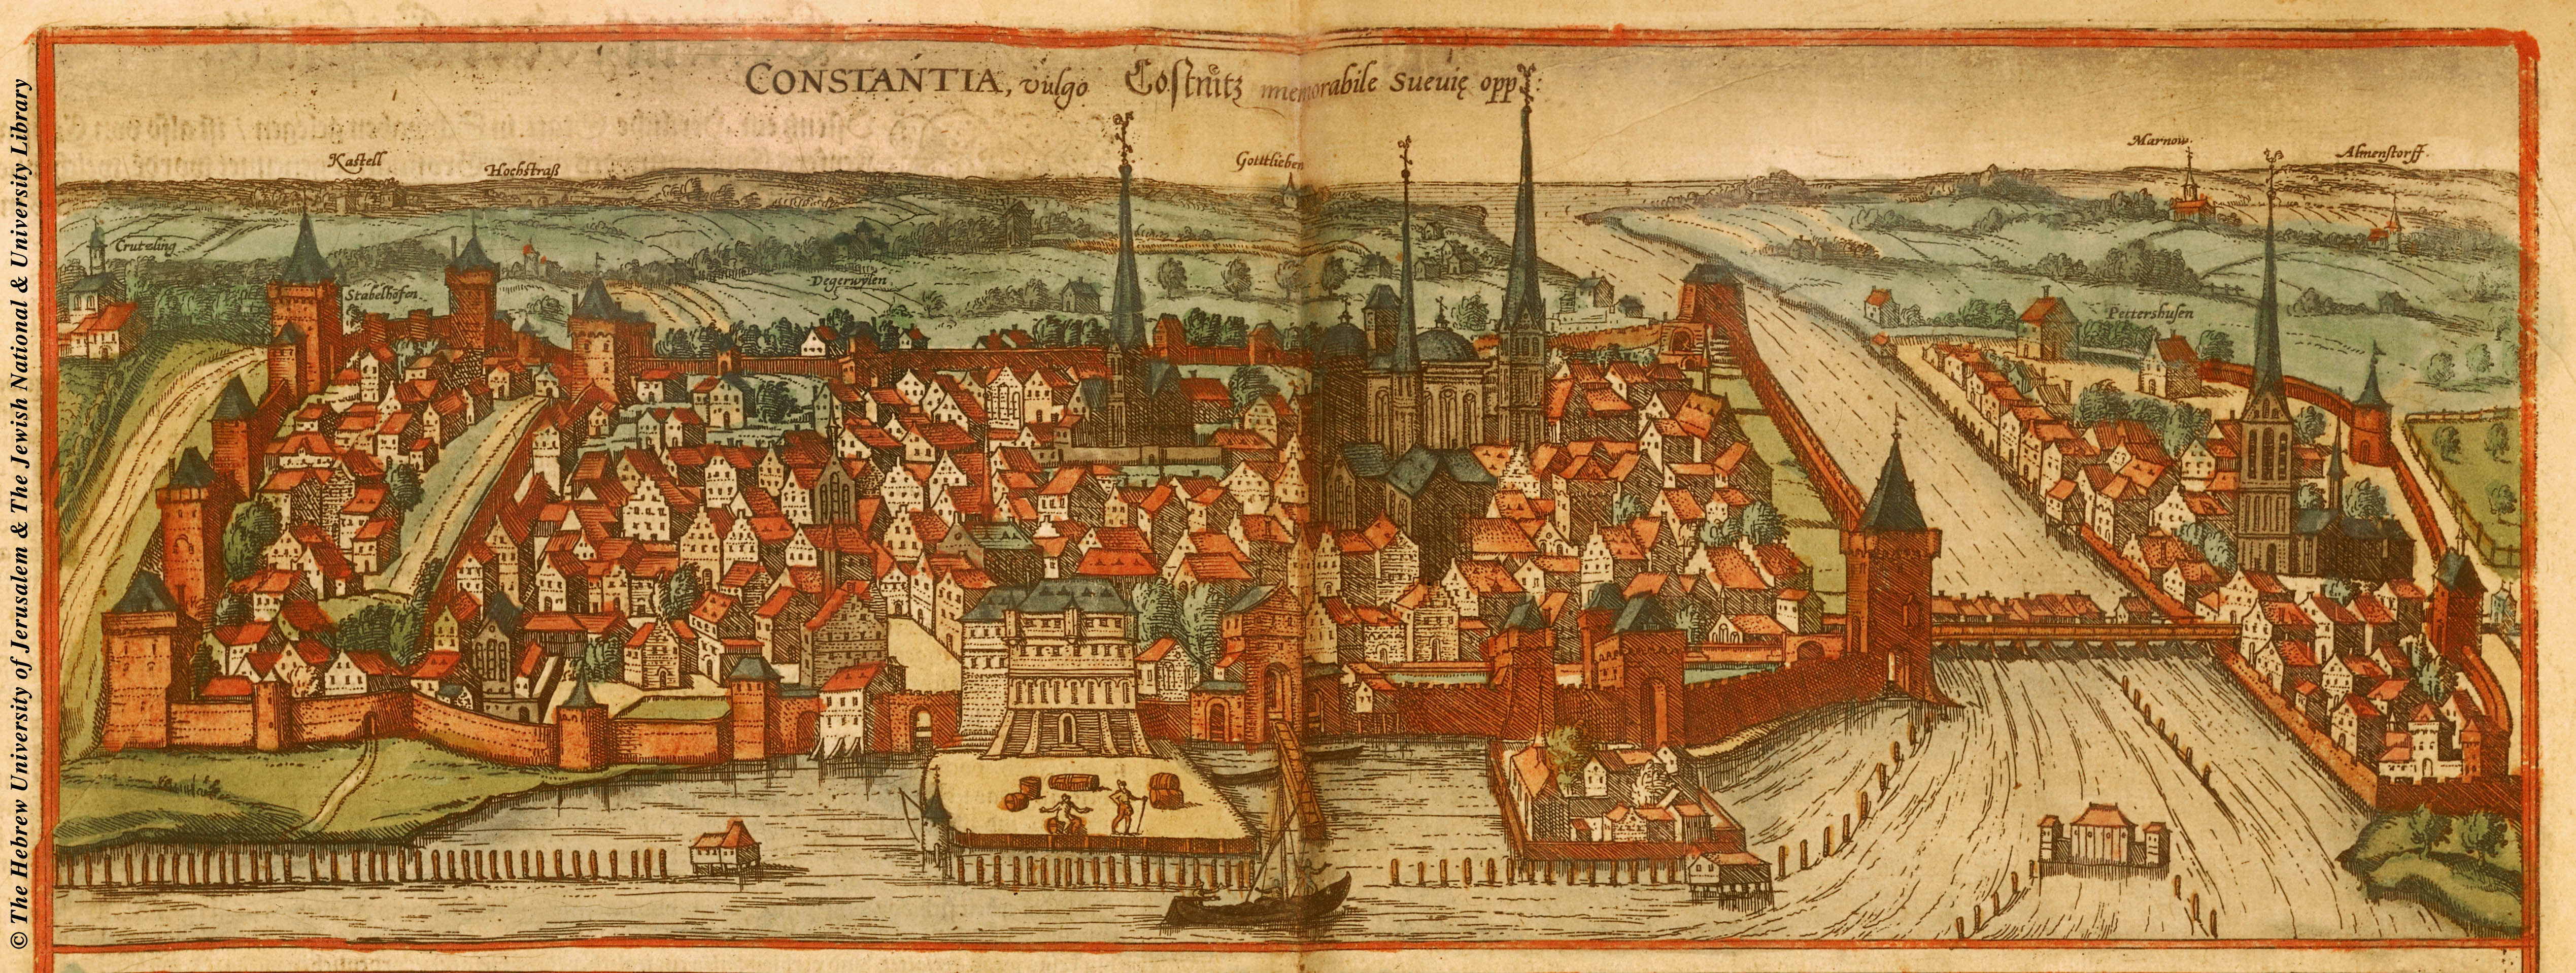 CONSTANTIA, vulgo Costnitz memorabile Sueuię opp:
Kastell
Hochstraß
Gottlieben
Marnow.
Almenstorff.
Crutzling
Stabelhofen.
Degerwylen
Pettershusen
© The Hebrew University of Jerusalem & The Jewish National & University Library